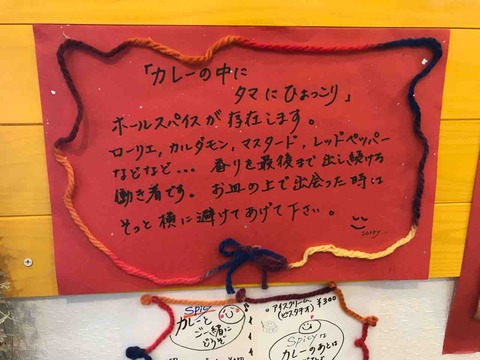 「カレーの中に
タマにひょっこり」
ホールスパイスが存在します。
ローリエ,カルダモン,マスタード,レッドペッパー
などなど... 香りを最後まで出し続ける
働き者です。お皿の上で出会った時は
そっと横に避けてあげて下さい。
sorry
Spicy
カレーと
ご一緒に
どうぞ
アイスクリーム
(ピスタチオ) ¥300
SPICYな
カレーのあとは